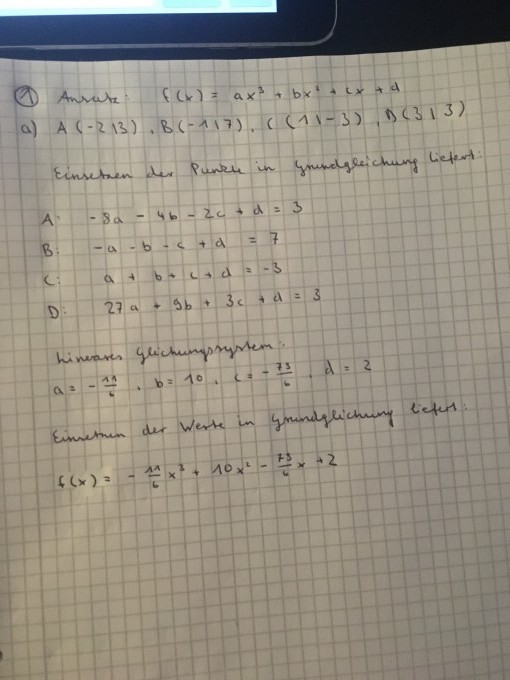 ① Ansatz: f(x) = ax³ + bx² + cx + d
a) A(-2|3), B(-1|7), C(1|-3), D(3|3)
Einsetzen der Punkte in Grundgleichung liefert:
A: -8a - 4b - 2c + d = 3
B: -a - b - c + d = 7
C: a + b + c + d = -3
D: 27a + 9b + 3c + d = 3
Lineares Gleichungssystem:
a = -11/6, b = 10, c = -79/6, d = 2
Einsetzen der Werte in Grundgleichung liefert:
f(x) = -11/6 x³ + 10x² - 79/6 x + 2